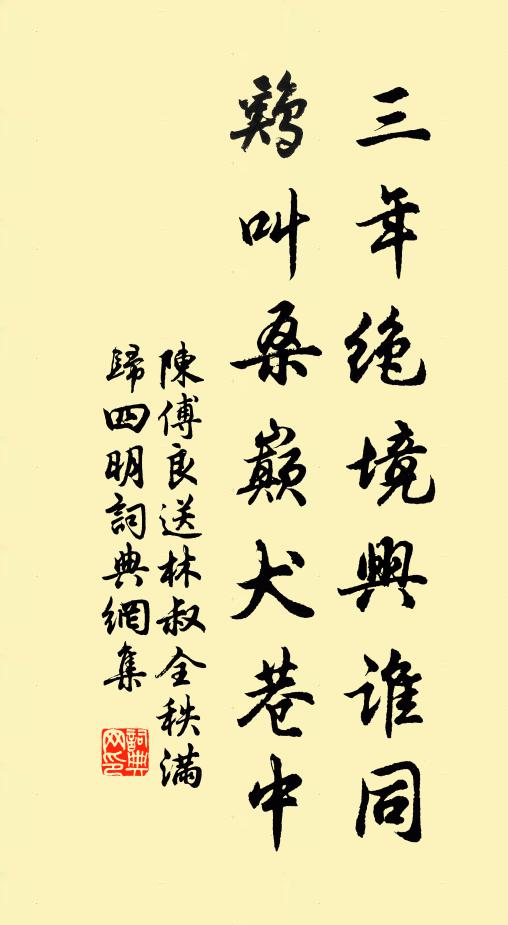 三年絶境興誰同
鷄叫桑巔犬巷中
陳傅良送林叔全秩滿
歸四明詞典網集
詞典
网印